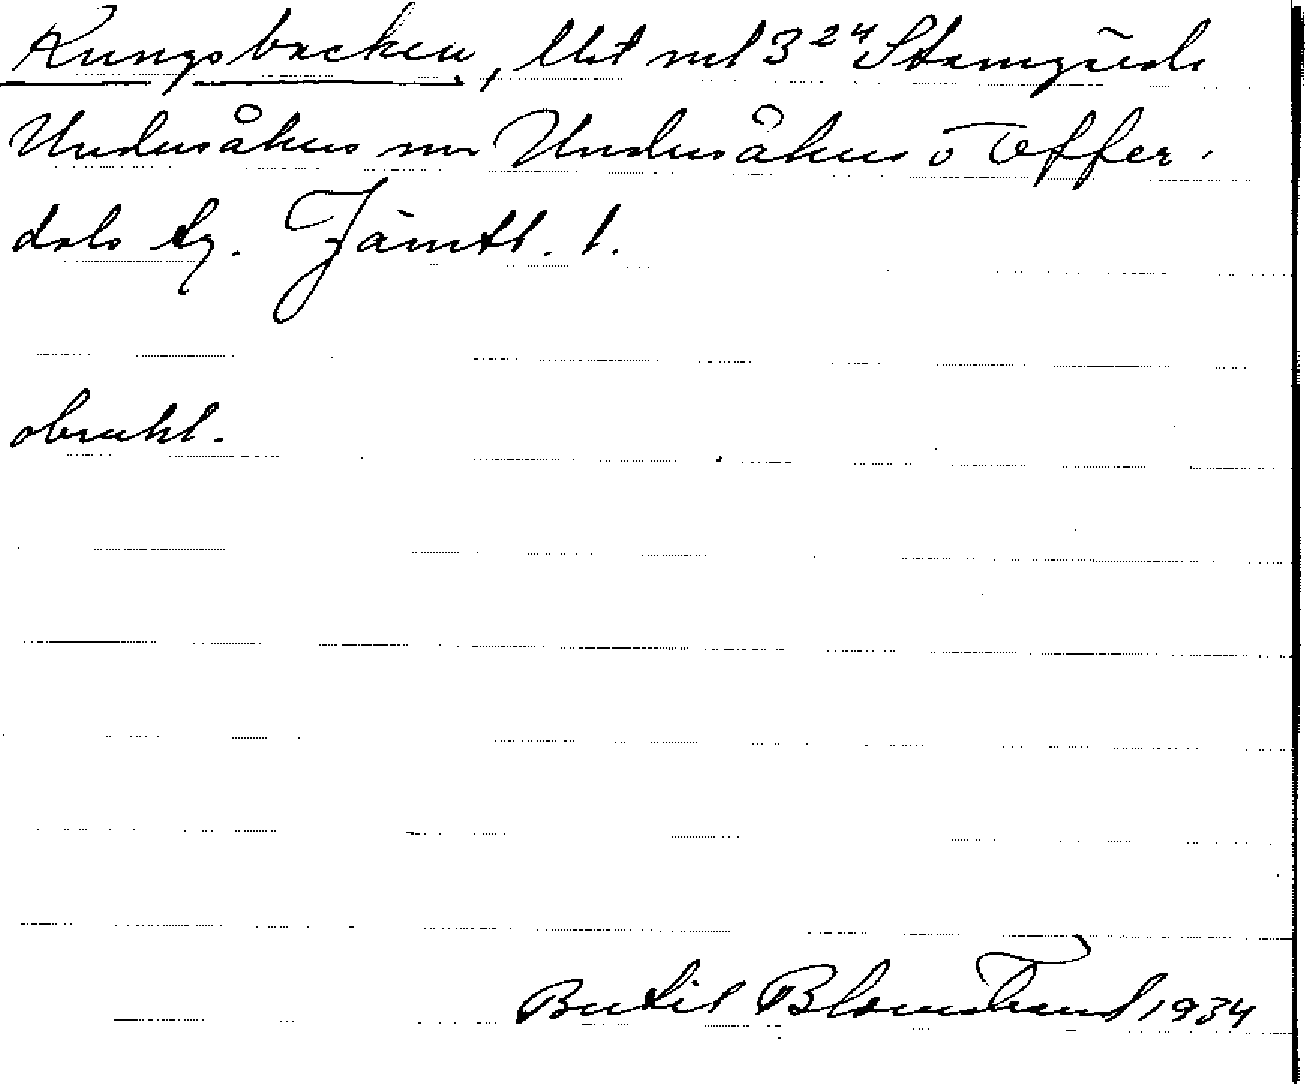 Kungsbacken, Utst nr 1 3²⁴ Stamgärde
Undersåkers sn Undersåkers o Offer-
dals tg. Jämtl. l.
obrukl.
Bertil Blomstrand 1934